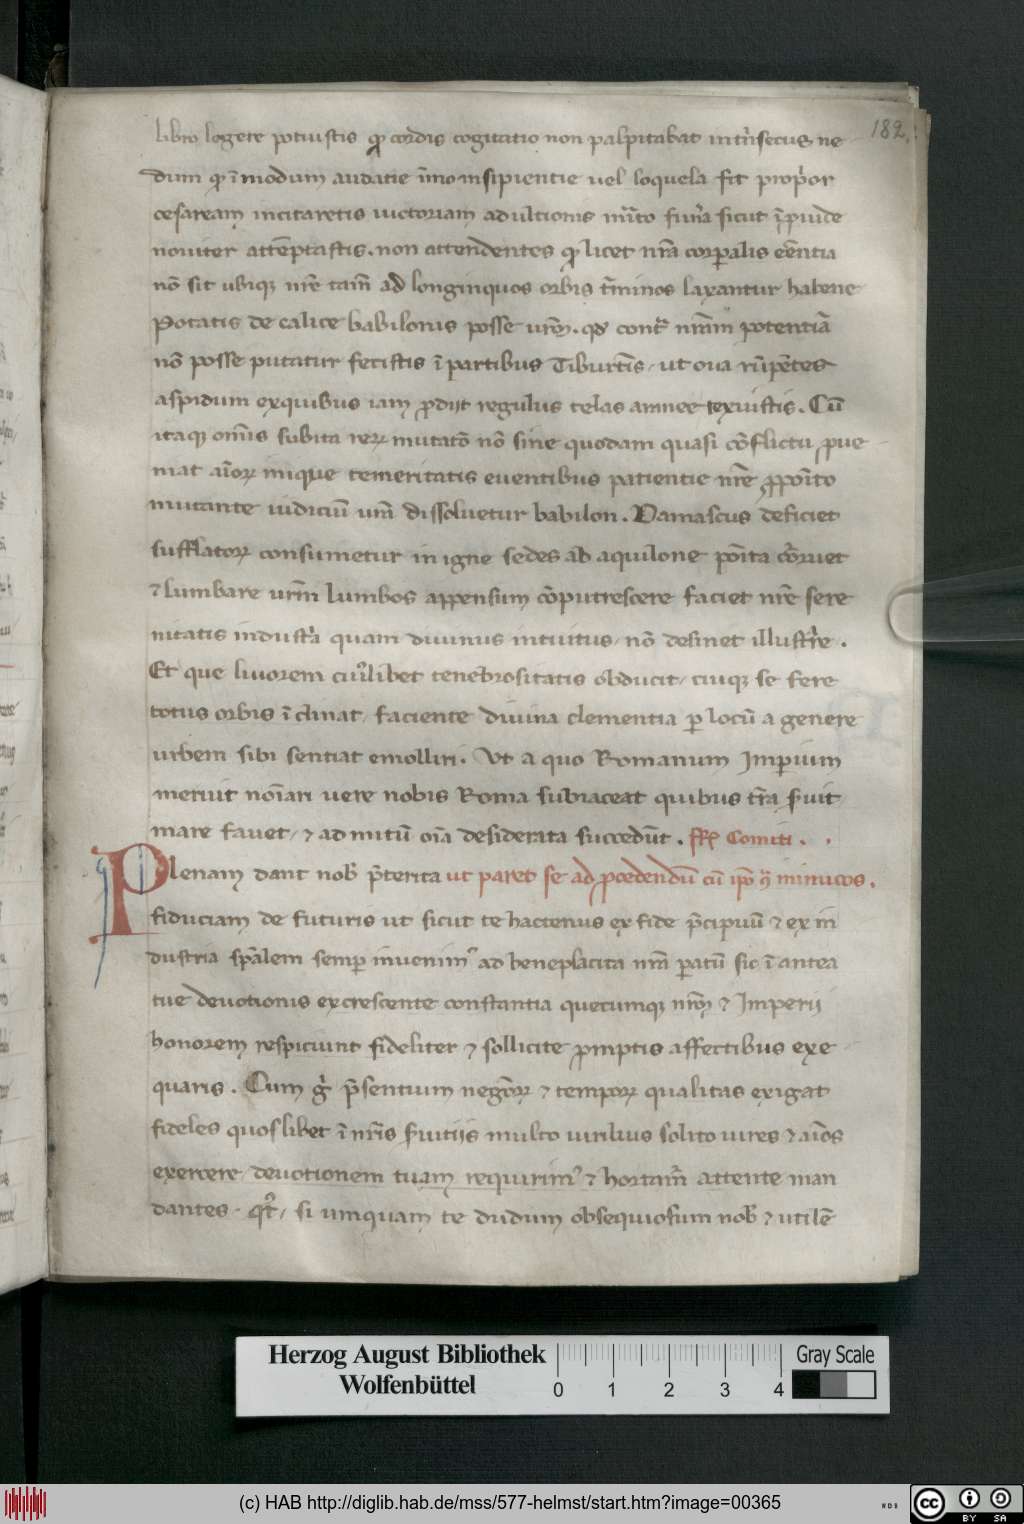 182.
libro legere potuistis qp cordis cogitatio non palpitabat intrisecus ne
dum qp ī modum audatie īmo insipientie uel loquela fit propior
cesaream incitaretis uictoriam ad ultionis sicut
nouiter attēptastis. non attendentes qp licet nrā corpalis eēntia
nō sit ubiqz nrē tam ad longinquos orbis tīminos laxantur habene
Potatis de calice babilonis posse urm. qd cont nram potentiā
nō posse putatur fecistis ī partibus Tiburtīs, ut oua rūpētes
aspidum exquibus iam prodijt regulus telas aranee texuistis. Cū
itaqz omīs subita rerz mutatō nō sine quodam quasi cōflictu proue
niat aīorz inique temeritatis euentibus patientie nrē ppoīto
mutante iudiciū urm dissoluetur babilon. Damascus deficiet
sufflatorz consumetur in igne sedes ab aquilone poīta cōruet
⁊ lumbare urm lumbos appensum cōputrescere faciet nrē sere
nitatis industria quam diuinus intuitus, nō desinet illustrare.
Et que liuorem cuiuslibet tenebrositatis obducit, cuiqz se fere
totus orbis īclinat, faciente diuina clementia p locū a genere
urbem sibi sentiat emolliri. Ut a quo Romanum Imperium
meruit noīari uere nobis Roma subiaceat quibus trā seruit
mare fauet, ⁊ ad nutū oīa desiderata succedūt. ffr Comiti.
Plenam dant nob pterita ut paret se ad pcedendū cū ipo inimicos.
fiduciam de futuris ut sicut te hactenus ex fide pcipuū ⁊ ex in
dustria spālem semp inuenim ad beneplacita nrā patū sic ī antea
tue deuotionis excrescente constantia quecumqz nrm ⁊ Imperij
honorem respiciunt fideliter ⁊ sollicite promptis affectibus exe
quaris. Cum g psentium negōrz ⁊ temporz qualitas exigat
fideles quoslibet ī nris seruitijs multo uirilius solito uires ⁊ aīos
exercere, deuotionem tuam requirim ⁊ hortam attente man
dantes. si umquam te dudum obsequiosum nob ⁊ utilē
Herzog August Bibliothek
Wolfenbüttel
0 1 2 3 4
Gray Scale
(c) HAB http://diglib.hab.de/mss/577-helmst/start.htm?image=00365
WDB
cc BY SA